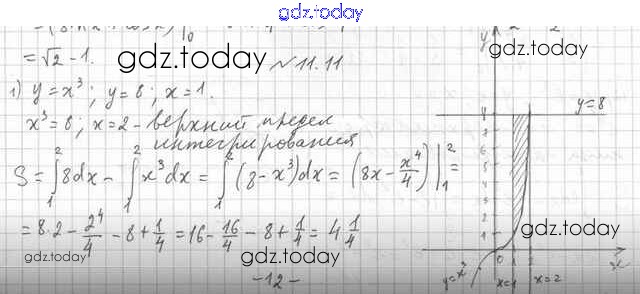 gdz.today
= √2 - 1.
gdz.today
№ 11.11
1) y = x³; y = 8; x = 1.
x³ = 8; x = 2 - верхний предел
интегрирования
S = ∫₁² 8dx - ∫₁² x³dx = ∫₁² (8 - x³)dx = (8x - x⁴/4) |₁² =
= 8·2 - 2⁴/4 - 8 + 1/4 = 16 - 16/4 - 8 + 1/4 = 4 1/4
gdz.today
gdz.today
gdz.today
-12-
y
y=8
8
0 1 2 x
y=x³ x=1 x=2